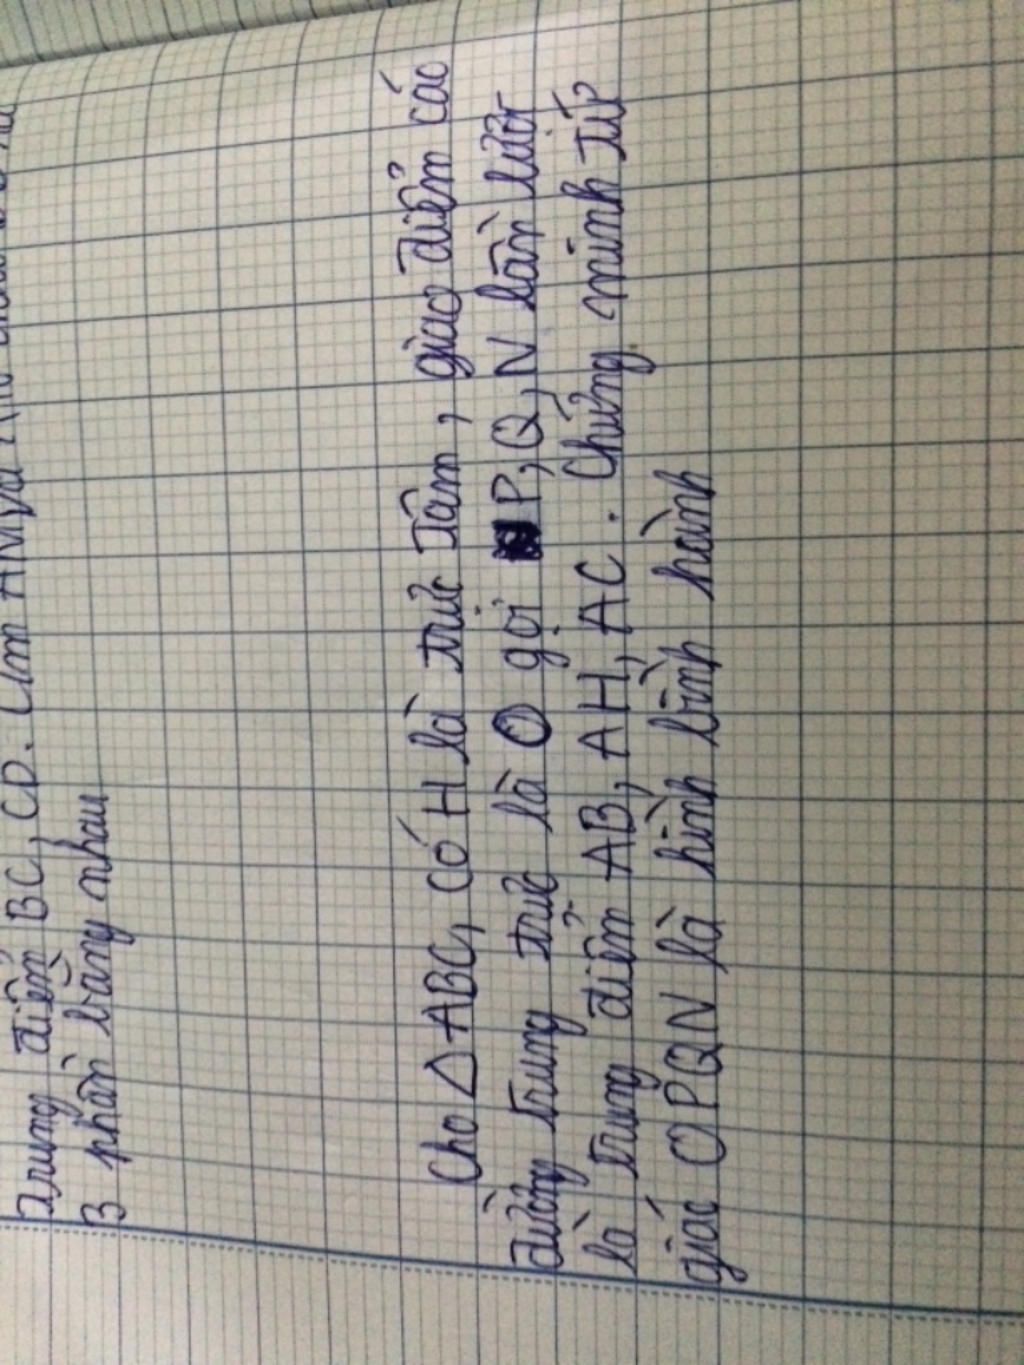 Trung điểm BC, CD. Cm AM và
3 phần bằng nhau
Cho △ABC, có H là trực tâm, giao điểm các
đường trung trực là O gọi P, Q, N lần lượt
là trung điểm AB, AH, AC. Chứng minh tứ
giác OPQN là hình bình hành